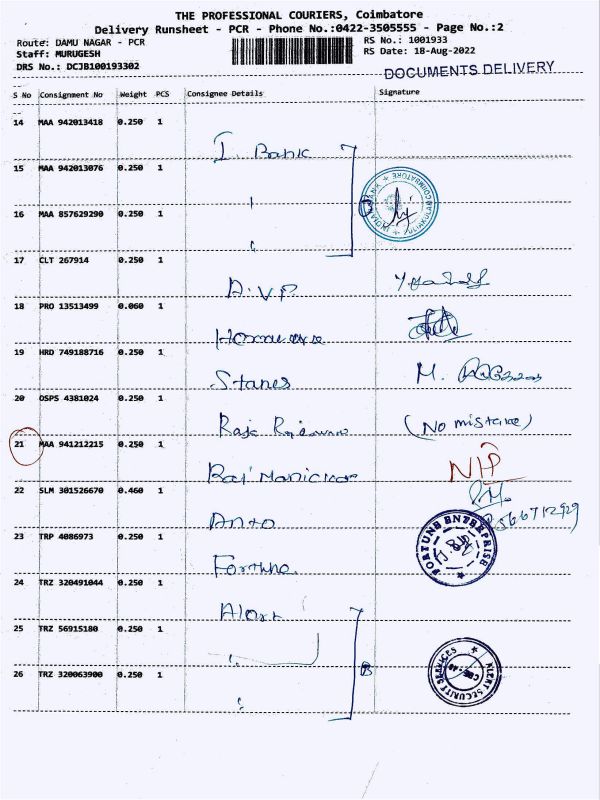 THE PROFESSIONAL COURIERS, Coimbatore
Delivery Runsheet - PCR - Phone No.:0422-3505555 - Page No.:2
Route: DAMU NAGAR - PCR
Staff: MURUGESH
DRS No.: DCJB100193302
RS No.: 1001933
RS Date: 18-Aug-2022
DOCUMENTS DELIVERY
S No Consignment No Weight PCS Consignee Details Signature
14 MAA 942013418 0.250 1
I Bank
15 MAA 942013076 0.250 1
16 MAA 857629290 0.250 1
17 CLT 267914 0.250 1
D.V.P
18 PRO 13513499 0.060 1
19 HRD 749188716 0.250 1
Stanes M.
20 OSPS 4381024 0.250 1
Raja (No mistake)
21 MAA 941212215 0.250 1
22 SLM 301526670 0.460 1
Anto
FORTUNE ENTERPRISE
23 TRP 4086973 0.250 1
Fortune
24 TRZ 320491044 0.250 1
Alert
25 TRZ 56915180 0.250 1
ALERT SECURITY SERVICES
26 TRZ 320063900 0.250 1